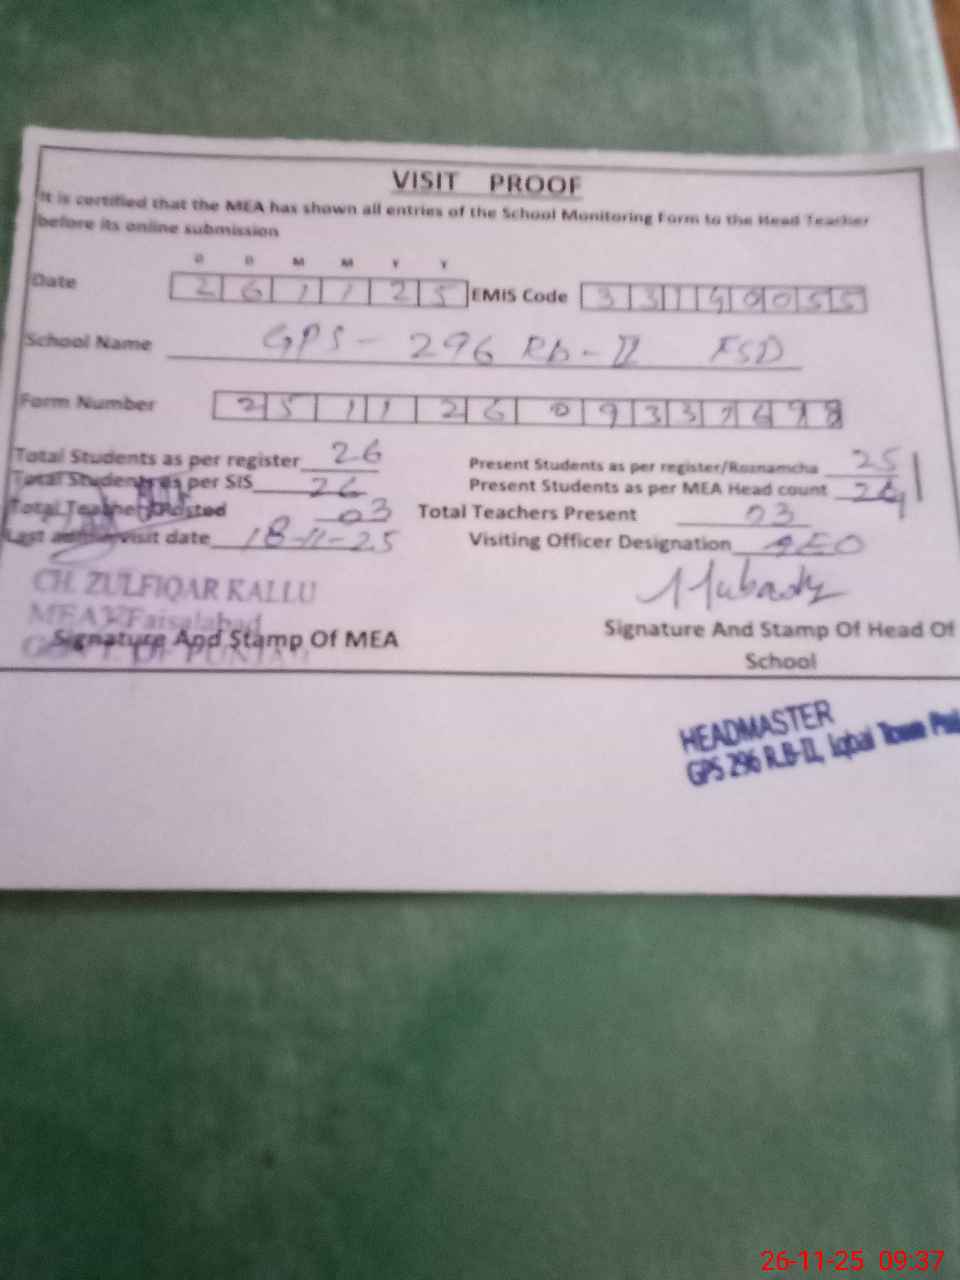 VISIT PROOF
It is certified that the MEA has shown all entries of the School Monitoring Form to the Head Teacher
before its online submission
D D M M Y Y
Date 2 6 1 1 2 5 EMIS Code 3 3 1 4 0 0 5 5
School Name GPS - 296 Rb - II FSD
Form Number 2 5 1 1 2 6 0 9 3 3 7 6 9 8
Total Students as per register 26 Present Students as per register/Roznamcha 25
Total Students as per SIS 26 Present Students as per MEA Head count 24
Total Teachers Posted 03 Total Teachers Present 03
Last visit date 18-11-25 Visiting Officer Designation AEO
CH. ZULFIQAR KALLU
MEA Faisalabad
GOVT. OF PUNJAB
Signature And Stamp Of MEA Signature And Stamp Of Head Of
School
HEADMASTER
GPS 296 R.B-II, Iqbal Town
26-11-25 09:37